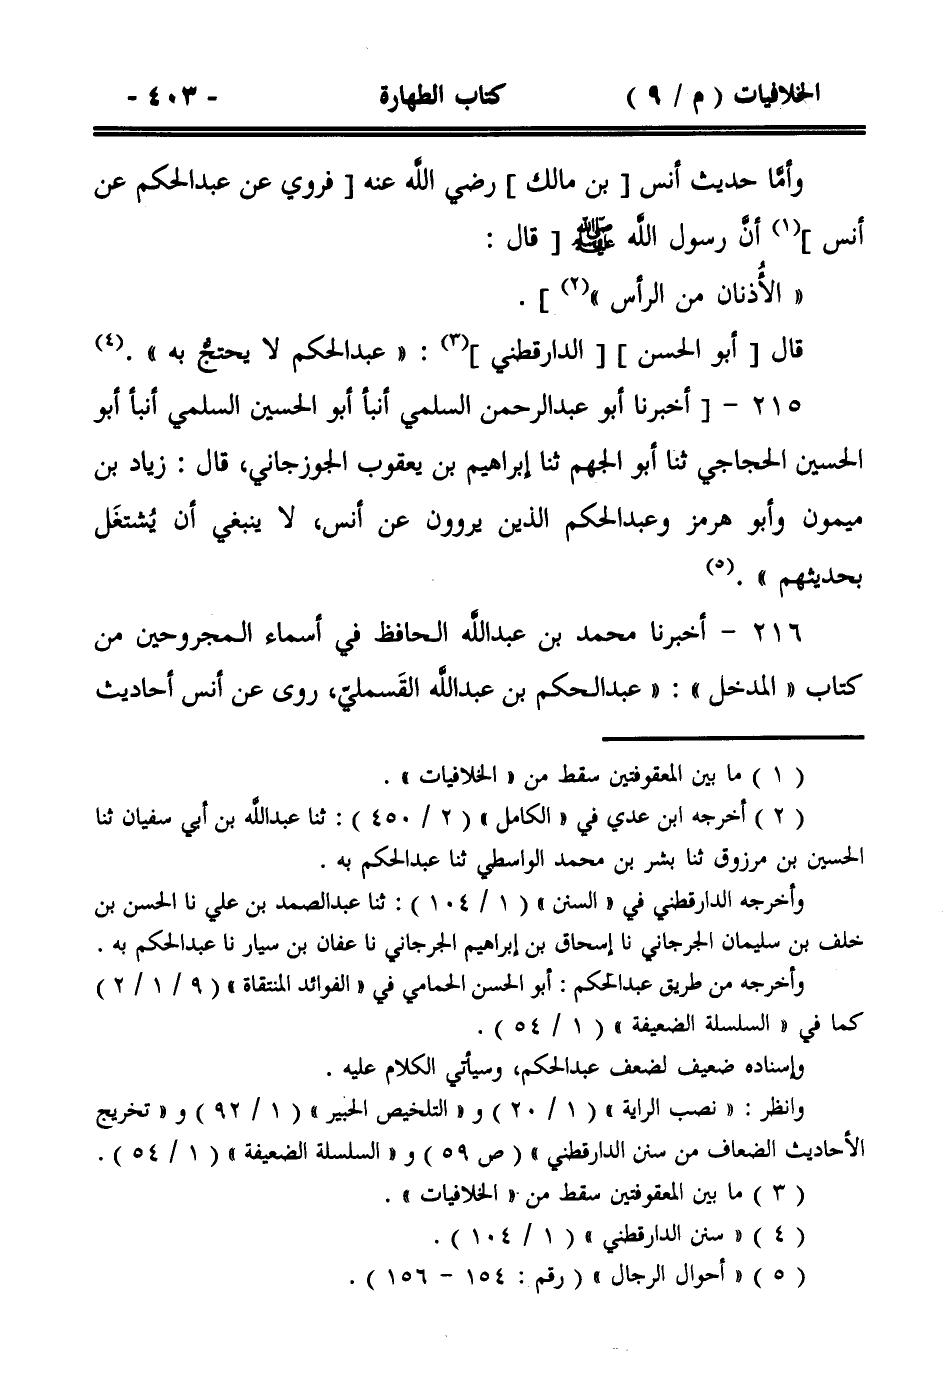 الخلافيات ( م / ٩ ) كتاب الطهارة - ٤٠٣ -
وأمَّا حديث أنس [ بن مالك ] رضي اللَّه عنه [ فروي عن عبدالحكم عن
أنس ](١) أنَّ رسول اللَّه ﷺ [ قال :
« الأُذنان من الرأس »(٢) ] .
قال [ أبو الحسن ] [ الدارقطني ](٣) : « عبدالحكم لا يحتجُّ به » .(٤)
٢١٥ - [ أخبرنا أبو عبدالرحمن السلمي أنبأ أبو الحسين السلمي أنبأ أبو
الحسين الحجاجي ثنا أبو الجهم ثنا إبراهيم بن يعقوب الجوزجاني، قال : زياد بن
ميمون وأبو هرمز وعبدالحكم الذين يروون عن أنس، لا ينبغي أن يُشتغَل
بحديثهم » .(٥)
٢١٦ - أخبرنا محمد بن عبداللَّه الحافظ في أسماء المجروحين من
كتاب « المدخل » : « عبدالحكم بن عبداللَّه القَسمليّ، روى عن أنس أحاديث
( ١ ) ما بين المعقوفتين سقط من « الخلافيات » .
( ٢ ) أخرجه ابن عدي في « الكامل » ( ٢ / ٤٥٠ ) : ثنا عبداللَّه بن أبي سفيان ثنا
الحسين بن مرزوق ثنا بشر بن محمد الواسطي ثنا عبدالحكم به .
وأخرجه الدارقطني في « السنن » ( ١ / ١٠٤ ) : ثنا عبدالصمد بن علي نا الحسن بن
خلف بن سليمان الجرجاني نا إسحاق بن إبراهيم الجرجاني نا عفان بن سيار نا عبدالحكم به .
وأخرجه من طريق عبدالحكم : أبو الحسن الحمامي في « الفوائد المنتقاة » ( ٩ / ١ / ٢ )
كما في « السلسلة الضعيفة » ( ١ / ٥٤ ) .
وإسناده ضعيف لضعف عبدالحكم، وسيأتي الكلام عليه .
وانظر : « نصب الراية » ( ١ / ٢٠ ) و « التلخيص الحبير » ( ١ / ٩٢ ) و « تخريج
الأحاديث الضعاف من سنن الدارقطني » ( ص ٥٩ ) و « السلسلة الضعيفة » ( ١ / ٥٤ ) .
( ٣ ) ما بين المعقوفتين سقط من « الخلافيات » .
( ٤ ) « سنن الدارقطني » ( ١ / ١٠٤ ) .
( ٥ ) « أحوال الرجال » ( رقم : ١٥٤ - ١٥٦ ) .